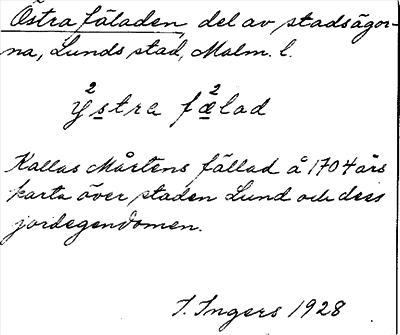 Östra fäladen, del av stadsägor-
na, Lunds stad, Malm. l.
y²stra fæ²lad
Kallas Mårtens fällad å 1704 års
karta över staden Lund och dess
jordegendomen.
I. Ingers 1928